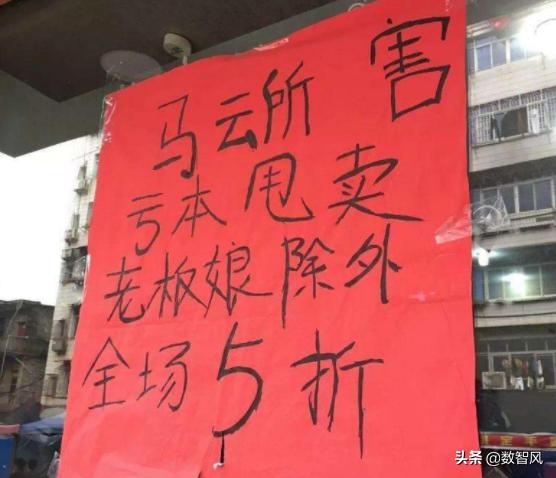 马云所害
亏本甩卖
老板娘除外
全场5折
头条 @数智风